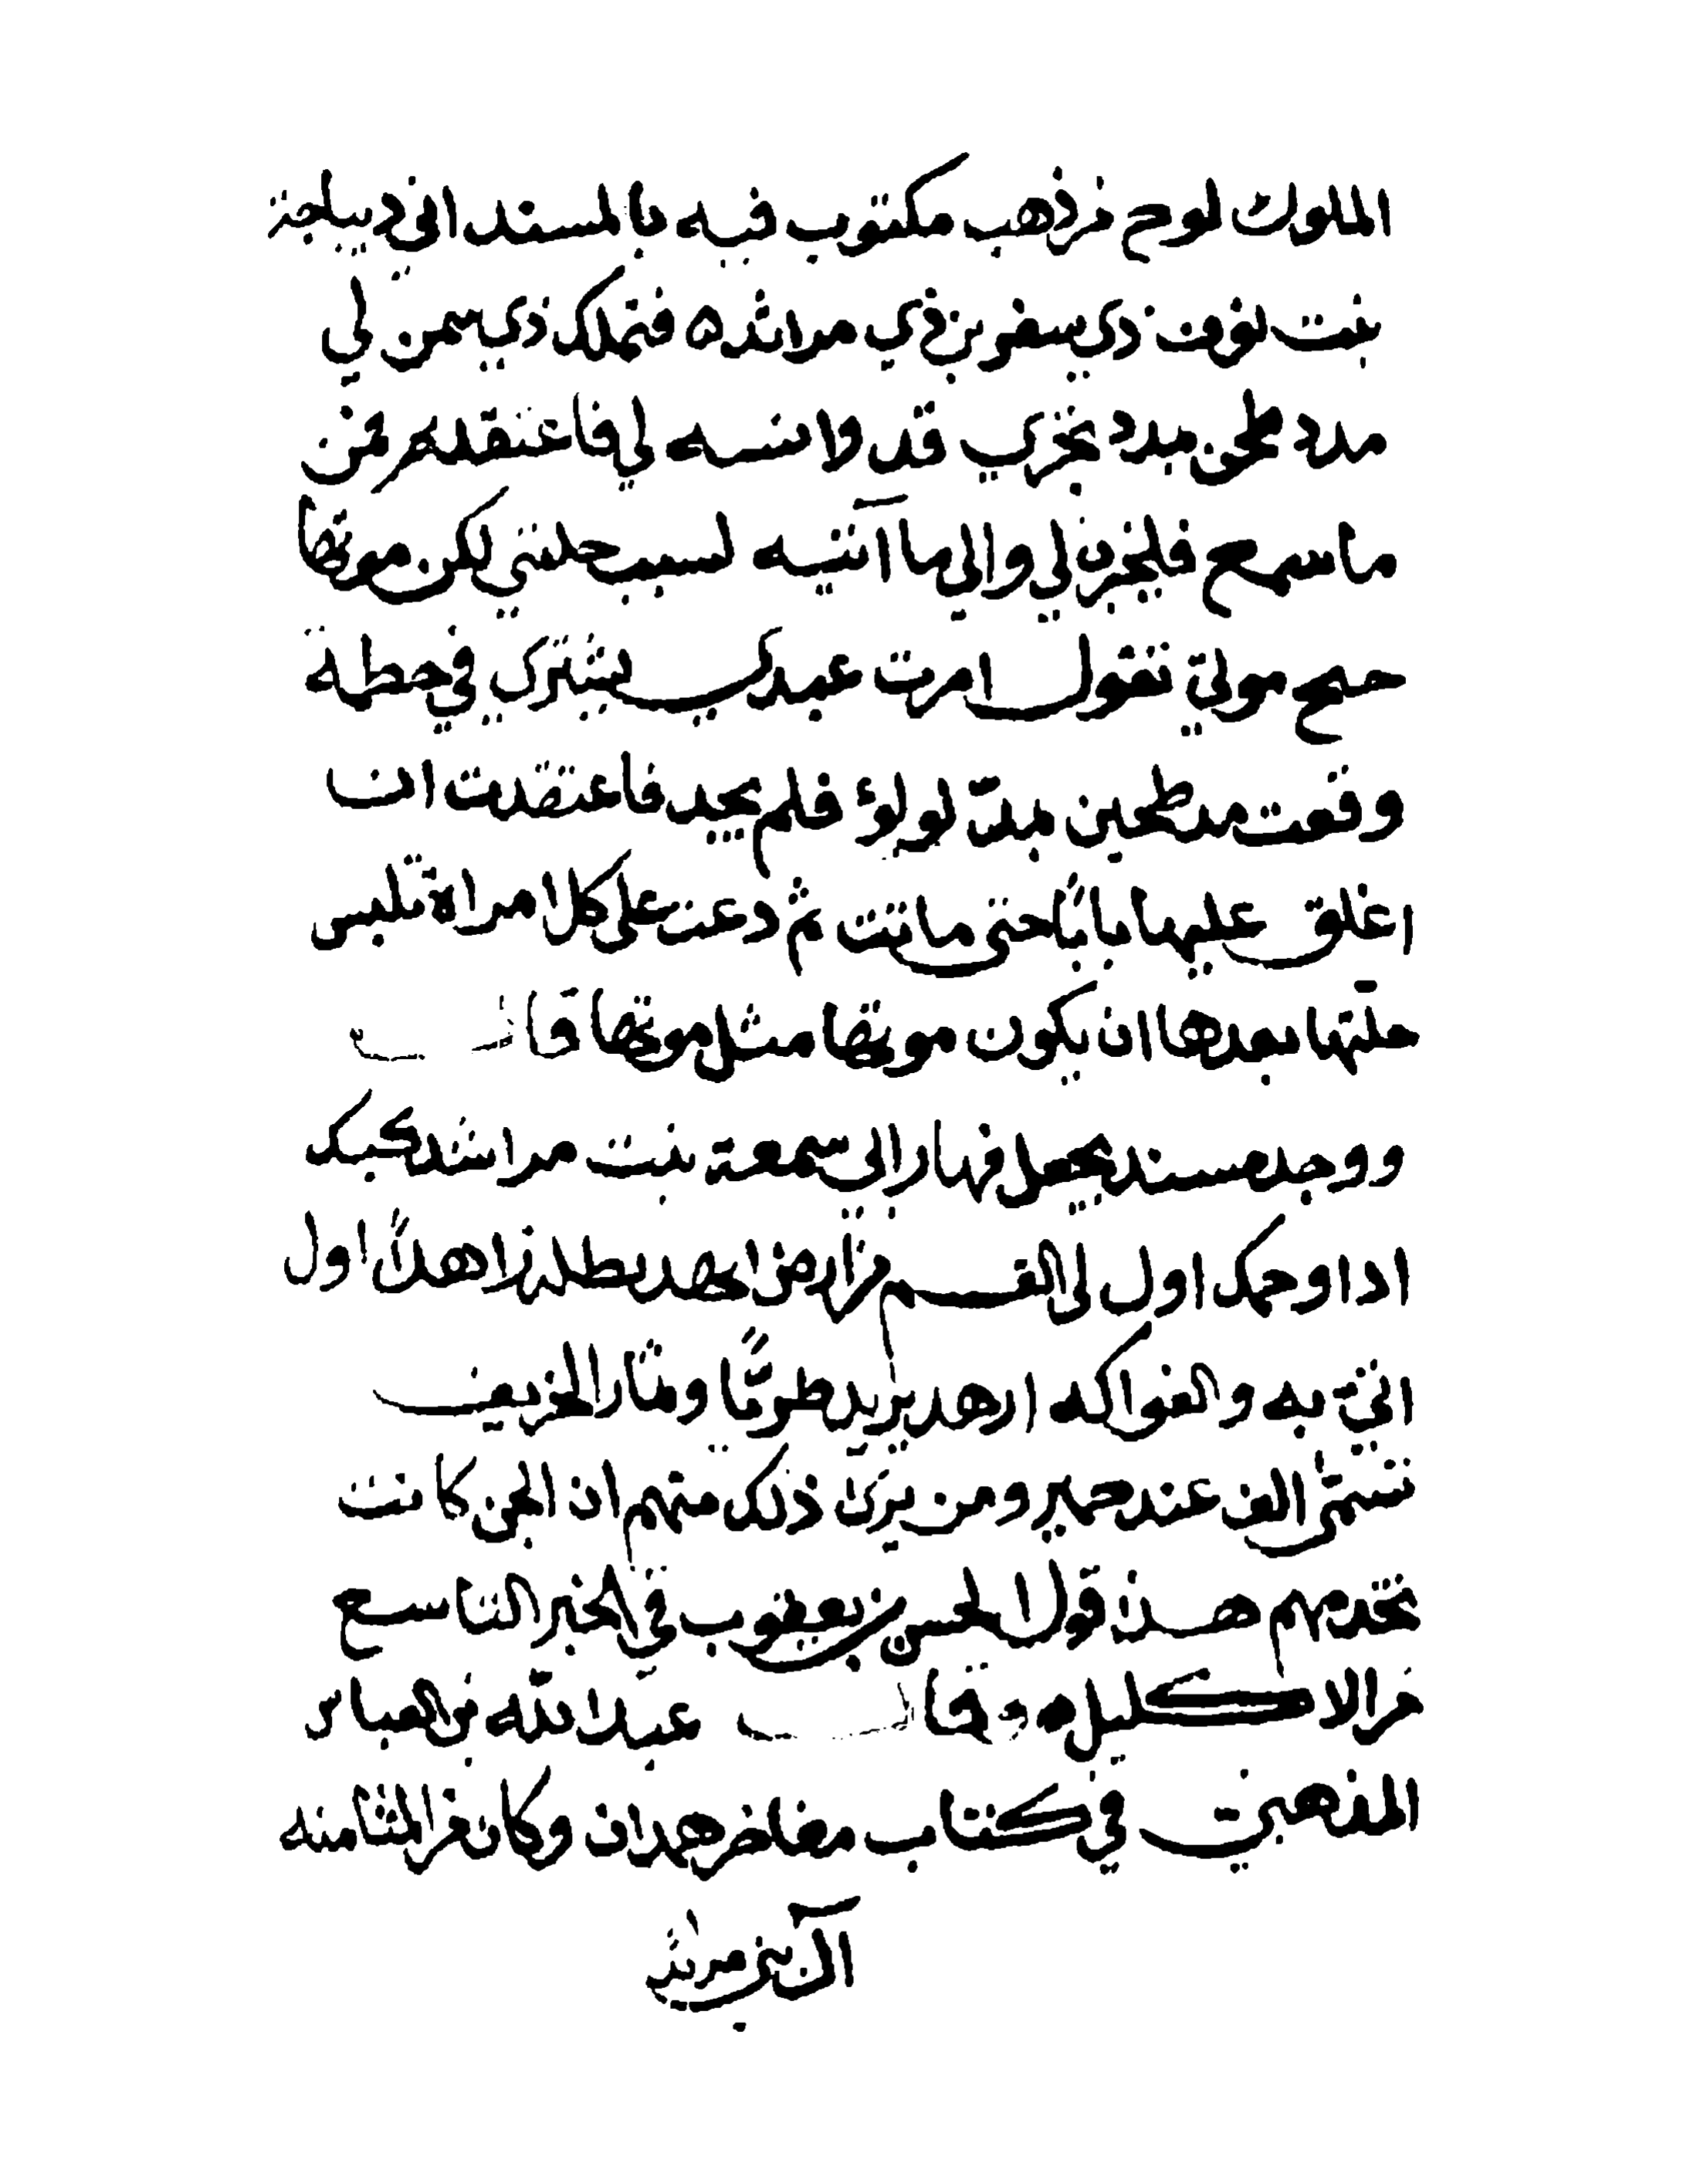 الملوك لوح من ذهب مكتوب فيه بالمسند اني ديباجة
بنت نوف ذي سفر بن ذي مراثد ه فتملك ذي سمن لي
مدد طحن بمدد بحري قد ولا نسه لي فاعتقدهم فمن
ما سمع فليخزن لي والي ما آتيه لسبب حليتي لكن موتها
حيح موتي تقول امرت عبدي يشتري في حطة
وقعت مد طحين بمد لولؤ فلم يجد فاعتقدت ان
اغلق عليها بابًا حتى ماتت ثم دعت على كل امراة تلبس
حليتها بعدها ان يكون موتها مثل موتها قال
ووجد مسند يحصل فنهار الي سمعة بنت مراشد كبك
اداوحمك اول لي القسم من ارض اهدًا اول
اتي به والفواكه ارهد يزيد طومًا وثمار الخريف
تسمى الف عند حمير ومن يرى ذلك منهم ان الجن كانت
تخدمهم هذا قول الحسن بن يعقوب في الخبر التاسع
من الاكليل ه وقال عبد الله بن العباس
المذهبي في كتاب مفاخر همدان وكان من المثامنه
ال بني مرثد